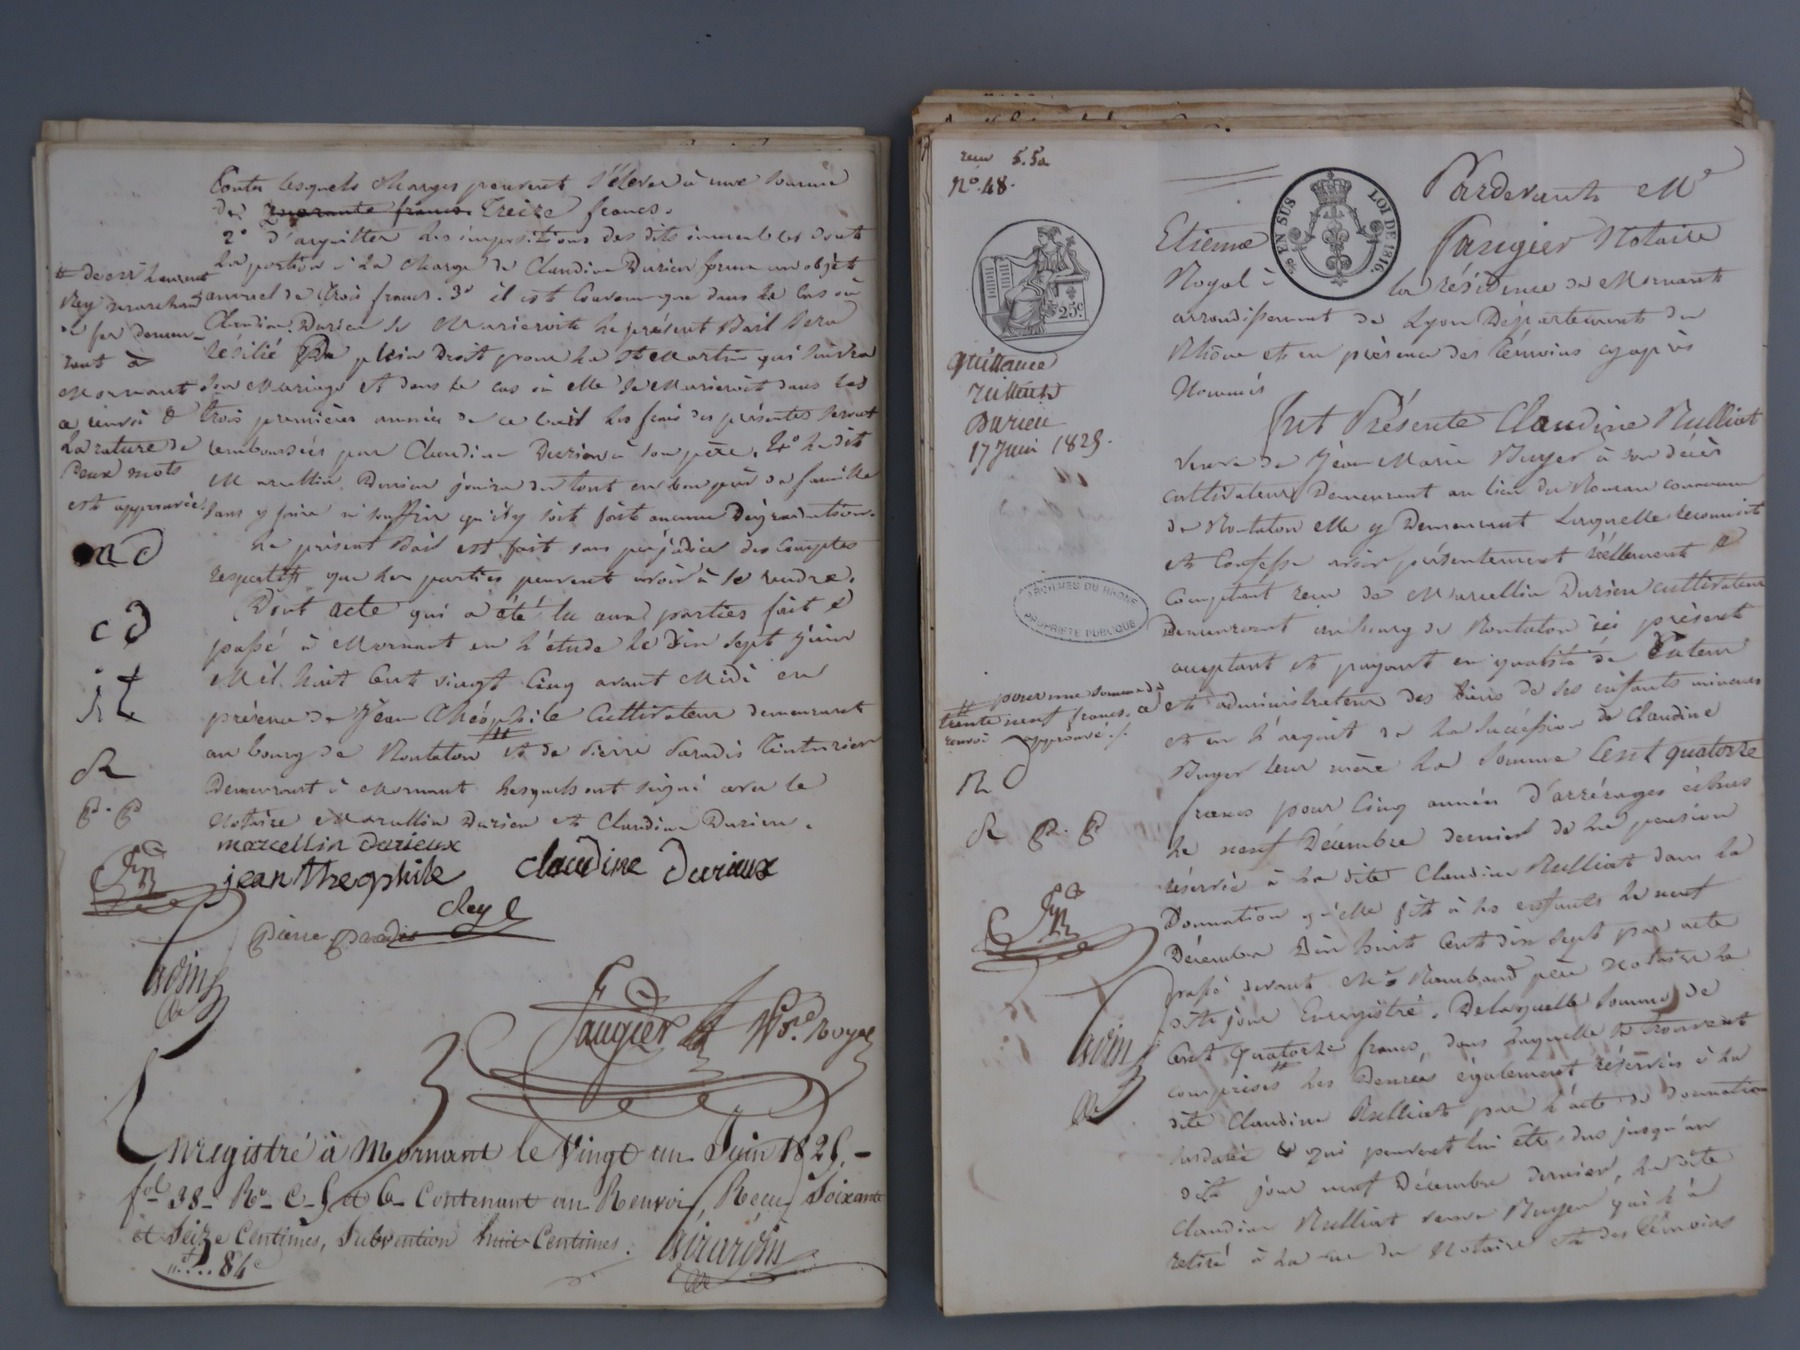 toutes lesquels charges peuvent s'élever à une somme
de quarante francs. Treize francs.
2° d'acquitter les impositions des dits immeubles dont
la portion à la charge de Claudine Durieu forme un objet
annuel de trois francs. 3° il est convenu que dans le cas où
Claudine Durieu se marieroit le présent Bail sera
résilié de plein Droit pour la St Martin qui suivra
son mariage et dans le cas où elle se marieroit dans les
trois premières années de ce bail les frais des présentes seront
remboursées par Claudine Durieu à son père. 4° le dit
Marcellin Durieu jouira du tout en bon père de famille
sans y faire ni souffrir qu'il y soit fait aucune Dégradation.
Le présent Bail est fait sans préjudice des Comptes
respectifs que les parties peuvent avoir à se rendre.
Dont acte qui a été lu aux parties fait &
passé à Mornant en l'étude le Dix sept Juin
Mil huit Cent vingt Cinq avant Midi en
présence de Jean Théophile Cultivateur demeurant
au bourg de Rontalon et de Pierre Paradis Teinturier
Demeurant à Mornant lesquels ont signé avec le
Notaire Marcellin Durieu et Claudine Durieu.
# de Sr Laurent
Rey marchand
de fer demeu-
rant à
Mornant
ce renvoi &
La rature de
Deux mots
est approuvée
m d
c d
j t
R
P. P
marcellin durieux
jean theophile claudine durieux
Rey
pierre paradis
Faugier Nre Royal
Enregistré à Mornant le Vingt un Juin 1825.
fol 38 Ro C 5 et 6 Contenant un Renvoi, Reçu Soixante
et Seize Centimes, Subvention huit Centimes.
84c
reçu 5.50
No. 48.
EN SUS
LOI DE 1816.
25c
Quittance
Rulliat à
Durieu
17 Juin 1825.
ARCHIVES DU RHONE
PROPRIETE PUBLIQUE
# pour une somme de
trente neuf francs. ce
renvoi approuvé.
R
R P. P
Pardevant Me
Etienne Faugier Notaire
Royal à la résidence de Mornant
arrondissement de Lyon Département du
Rhône et en présence des témoins cy après
Nommés
Fut Présente Claudine Rulliat
veuve de Jean Marie Buyer à son décès
cultivateur Demeurant au lieu du commune
de Rontalon elle y Demeurant Laquelle reconnoit
et Confesse avoir présentement réellement &
Comptant reçu de Marcellin Durieu cultivateur
Demeurant au bourg de Rontalon ici présent
acceptant et payant en qualité de Tuteur
et administrateur des biens de ses enfants mineurs
et en l'acquit de la Succession de Claudine
Buyer leur mère La Somme Cent quatorze
francs pour Cinq années d'arrérages échus
le neuf Décembre dernier de la pension
réservée à la dite Claudine Rulliat dans la
Donnation qu'elle fit à ses enfants le neuf
Décembre Dix huit Cent dix Sept par acte
passé devant Me Rambaud père Notaire le
dit jour Enregistré. De laquelle Somme de
Cent quatorze francs, dans laquelle se trouvent
comprises # les Denrées également réservées à la
dite Claudine Rulliat par l'acte de donnation
susdaté & qui peuvent lui être dus jusqu'au
dit jour neuf Décembre dernier, la dite
Claudine Rulliat veuve Buyer qui l'a
retiré à la vue du Notaire et des témoins